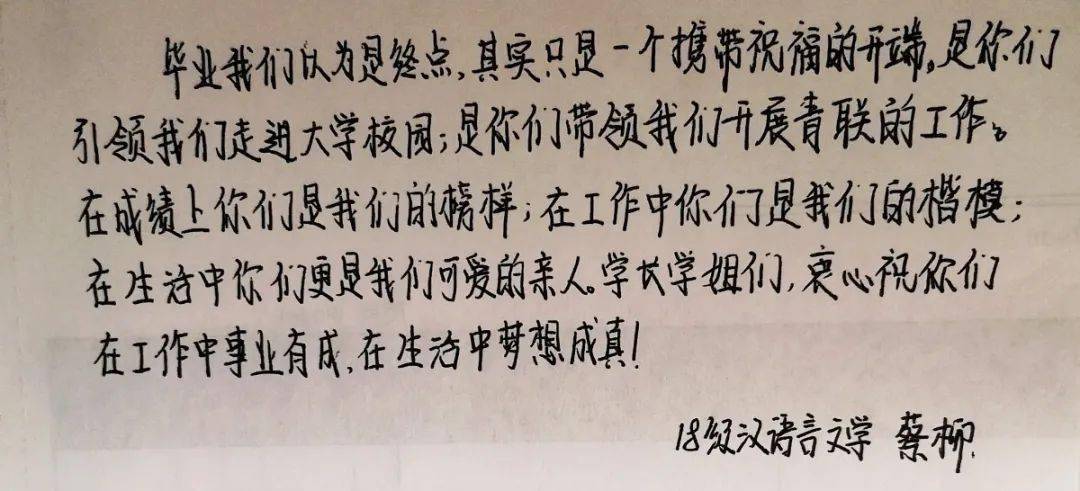 毕业我们以为是终点,其实只是一个携带祝福的开端,是你们
引领我们走进大学校园;是你们带领我们开展青联的工作。
在成绩上你们是我们的榜样;在工作中你们是我们的楷模;
在生活中你们更是我们可爱的亲人。学长学姐们,衷心祝你们
在工作中事业有成,在生活中梦想成真!
18级汉语言文学 蔡柳